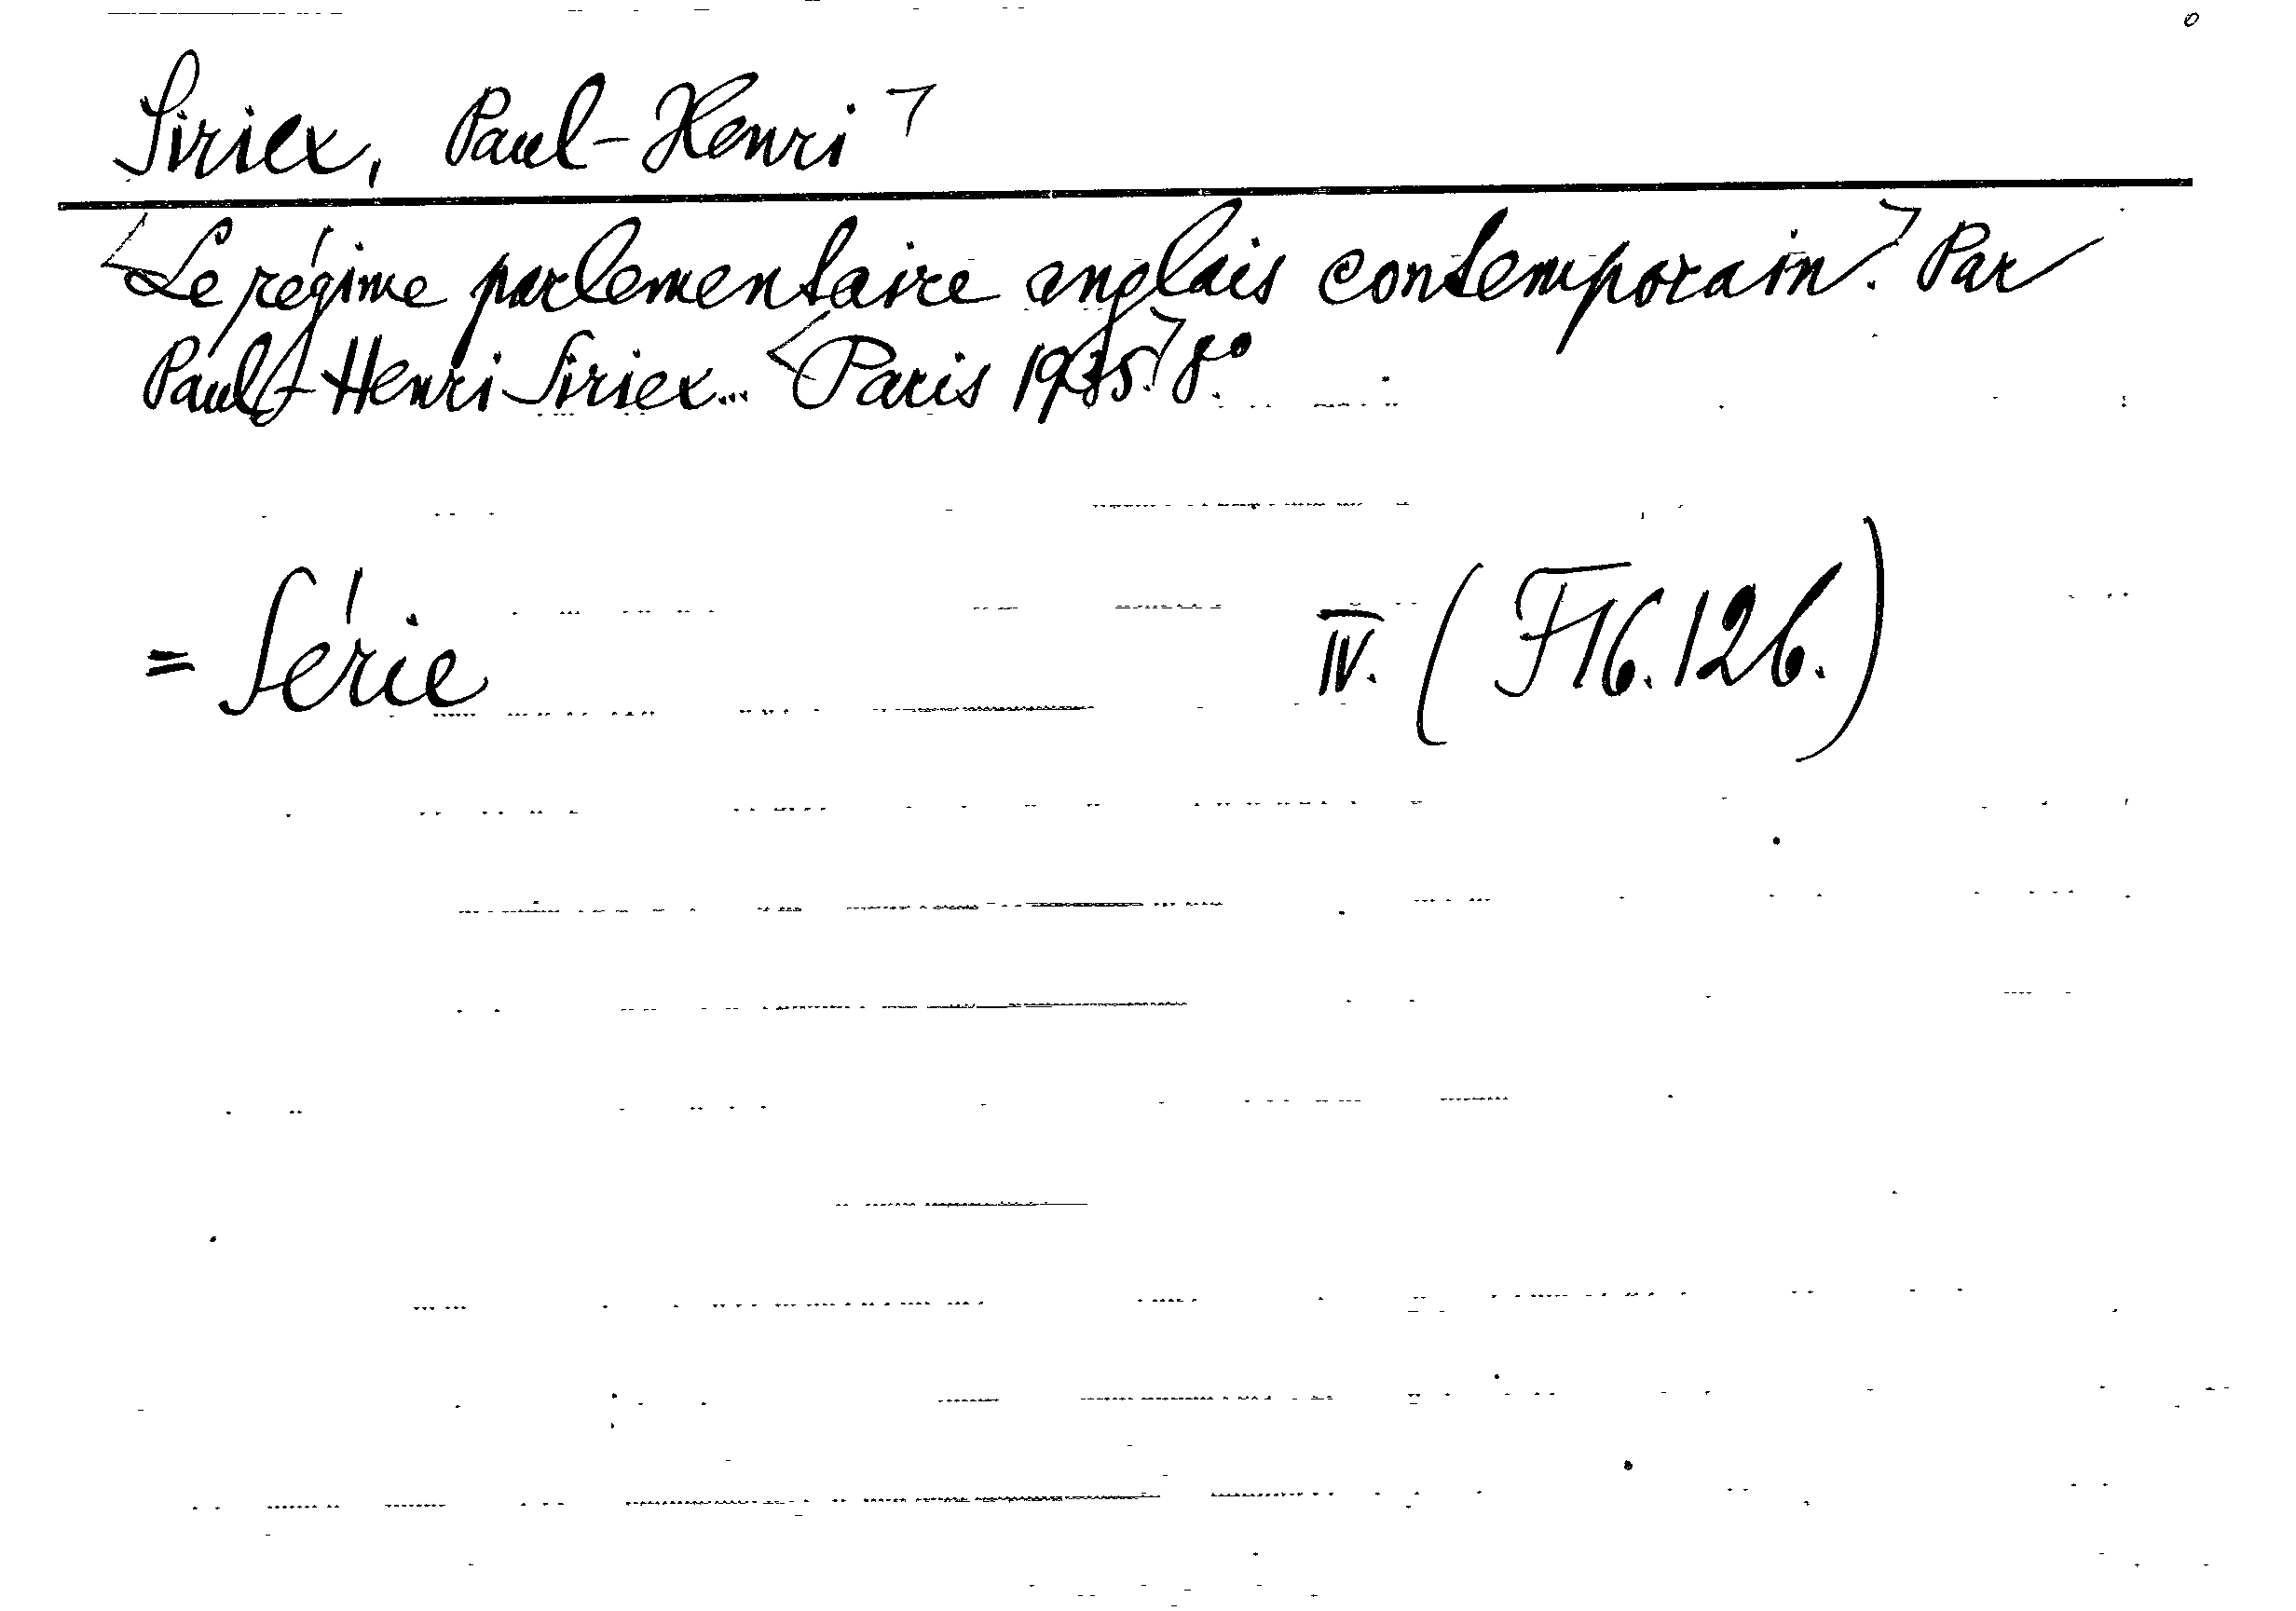 Siriex, Paul-Henri
Le régime parlementaire anglais contemporain. Par
Paul-Henri Siriex... Paris 1935. 8°.
= Série IV. (F16.126.)